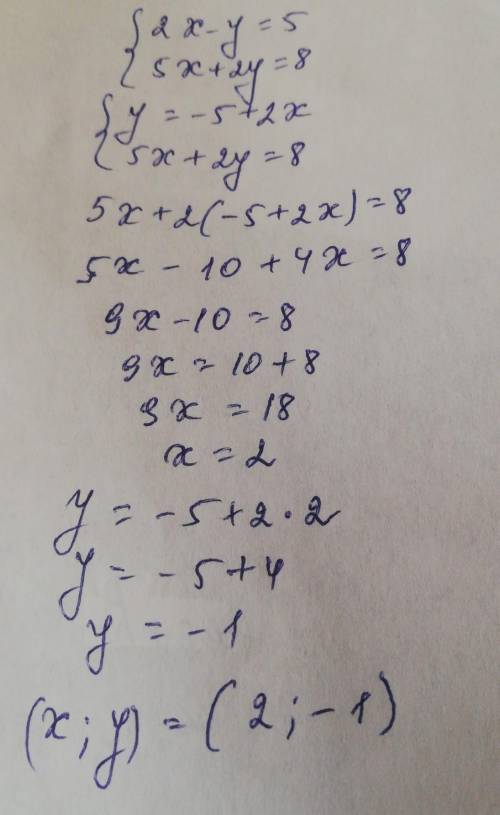 {2x-y=5
5x+2y=8
{y=-5+2x
5x+2y=8
5x+2(-5+2x)=8
5x-10+4x=8
9x-10=8
9x=10+8
9x=18
x=2
y=-5+2·2
y=-5+4
y=-1
(x;y)=(2;-1)